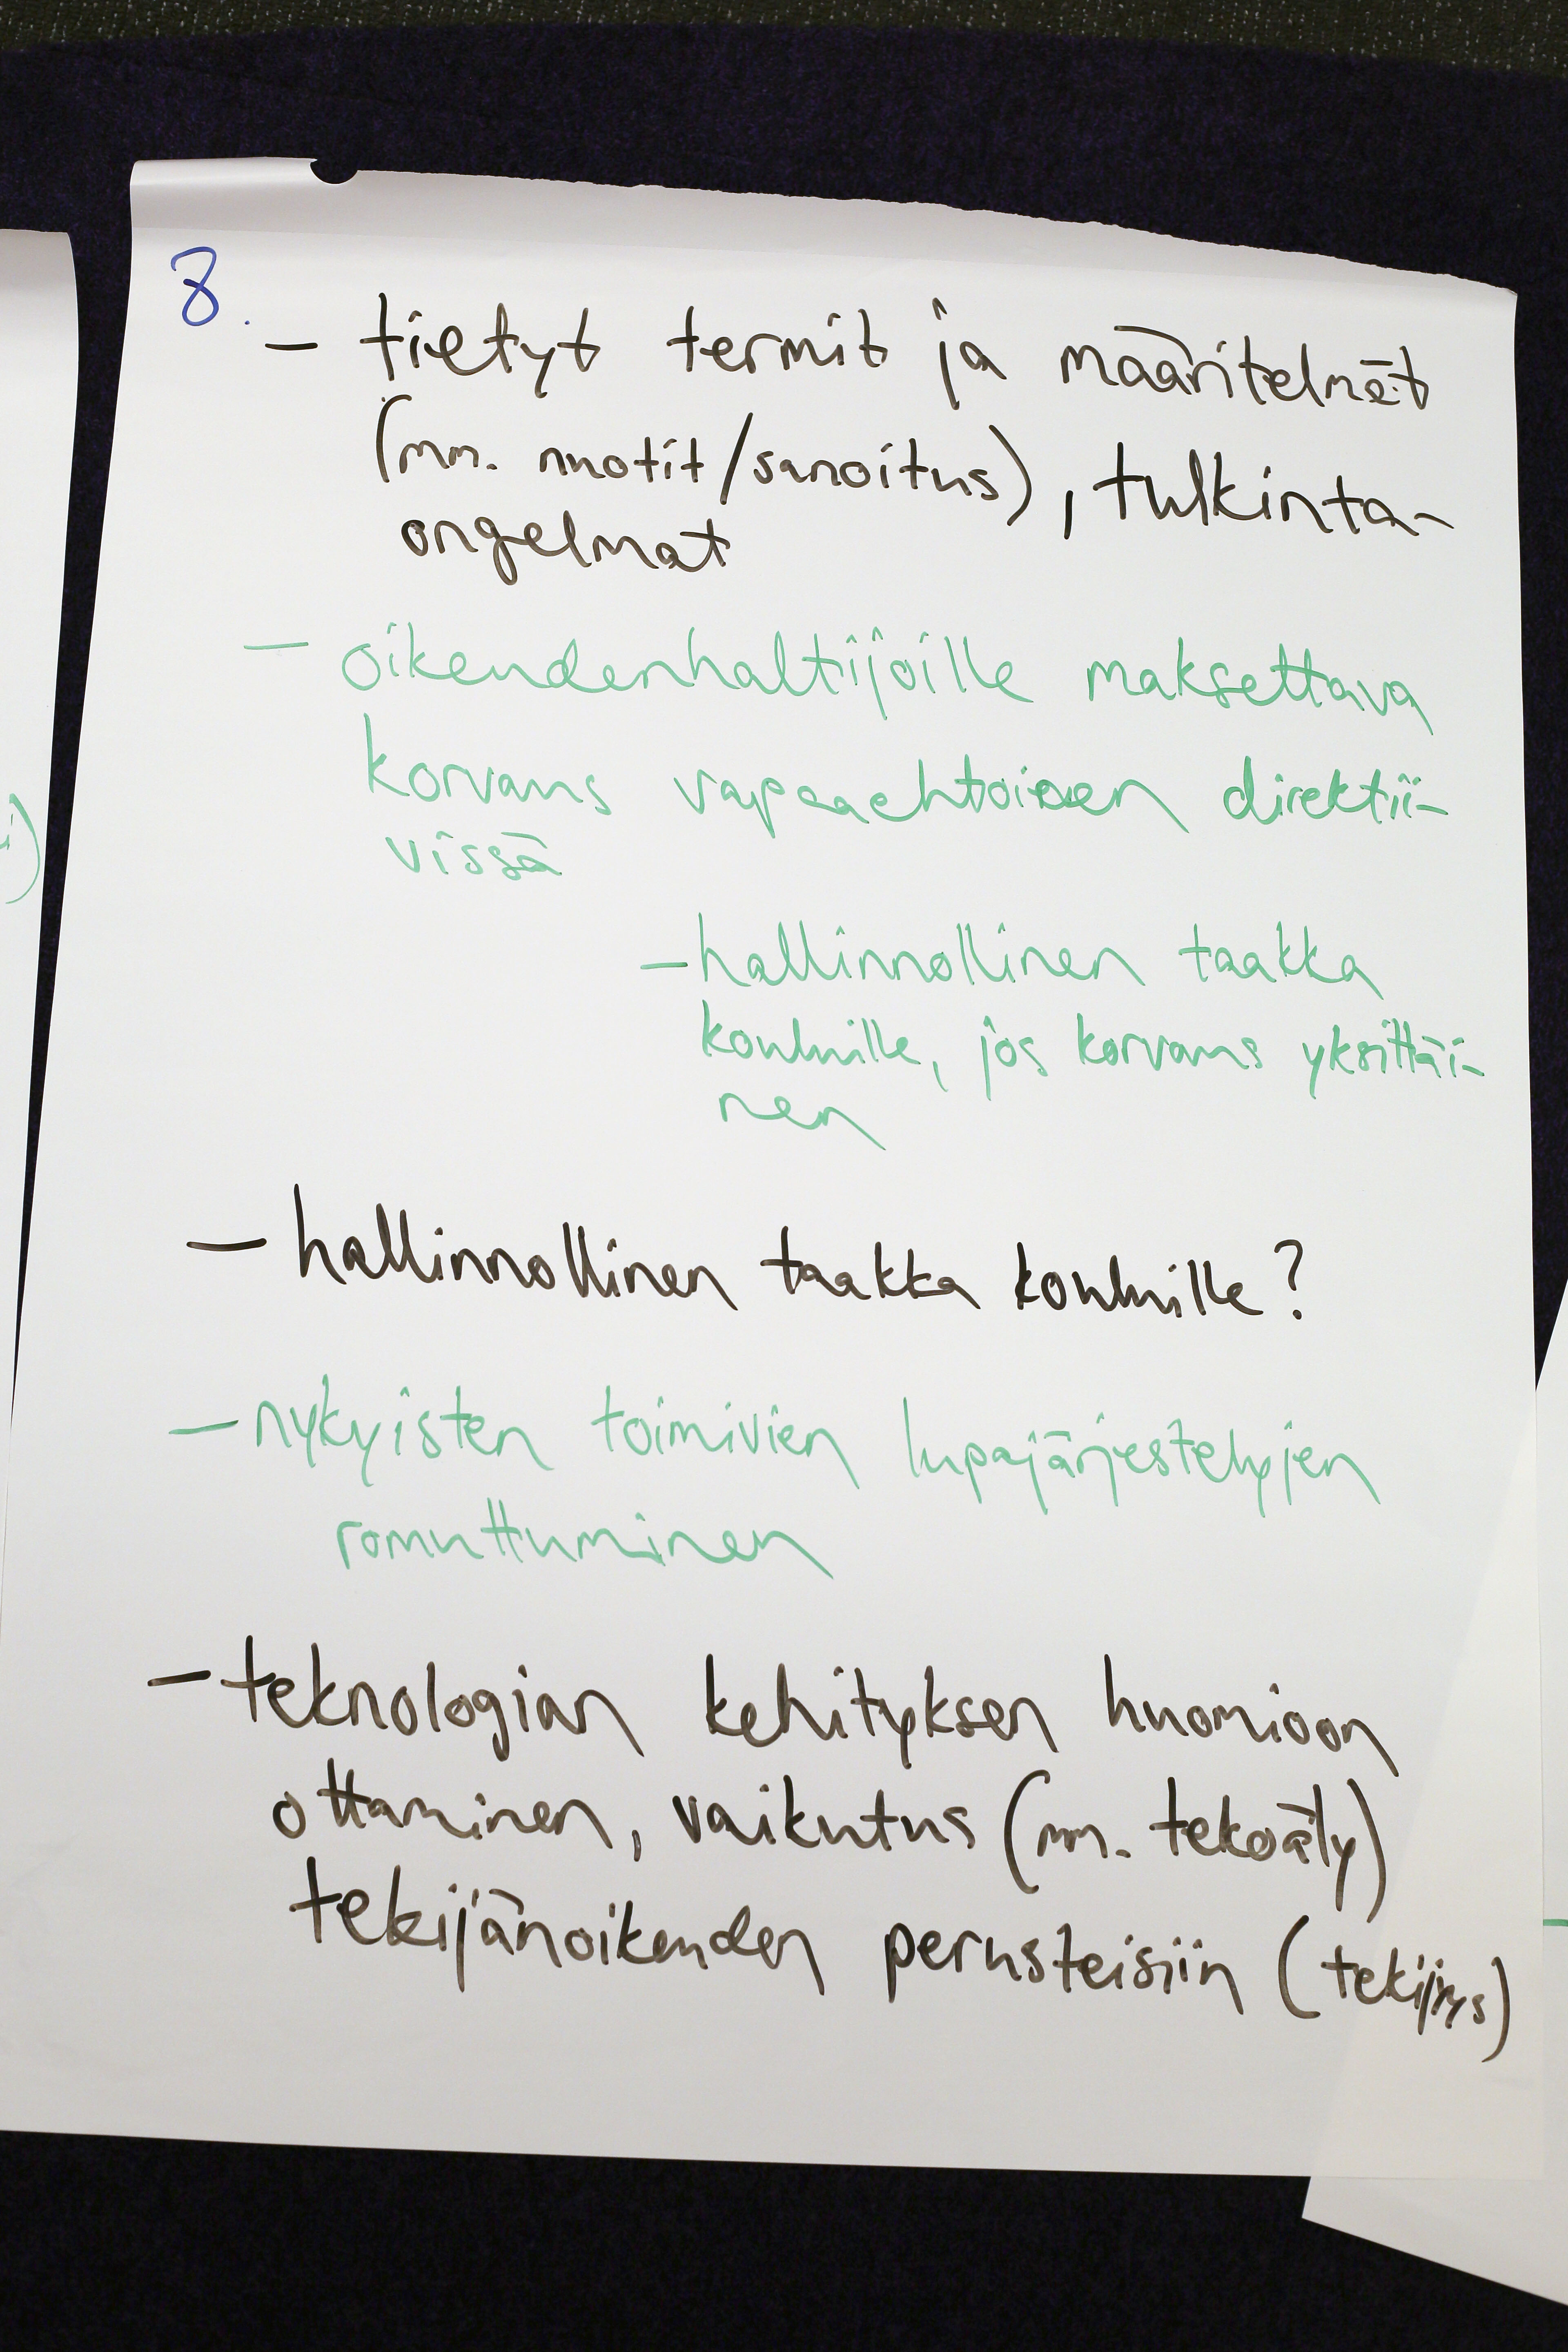 8.
– tietyt termit ja määritelmät
(mm. nuotit/sanoitus), tulkinta-
ongelmat
– oikeudenhaltijoille maksettava
korvaus vapaaehtoinen direktii-
vissä
– hallinnollinen taakka
kouluille, jos korvaus yksittäi-
nen
– hallinnollinen taakka kouluille?
– nykyisten toimivien lupajärjestelyjen
romuttuminen
– teknologian kehityksen huomioon
ottaminen, vaikutus (mm. tekoäly)
tekijänoikeuden perusteisiin (tekijyys)